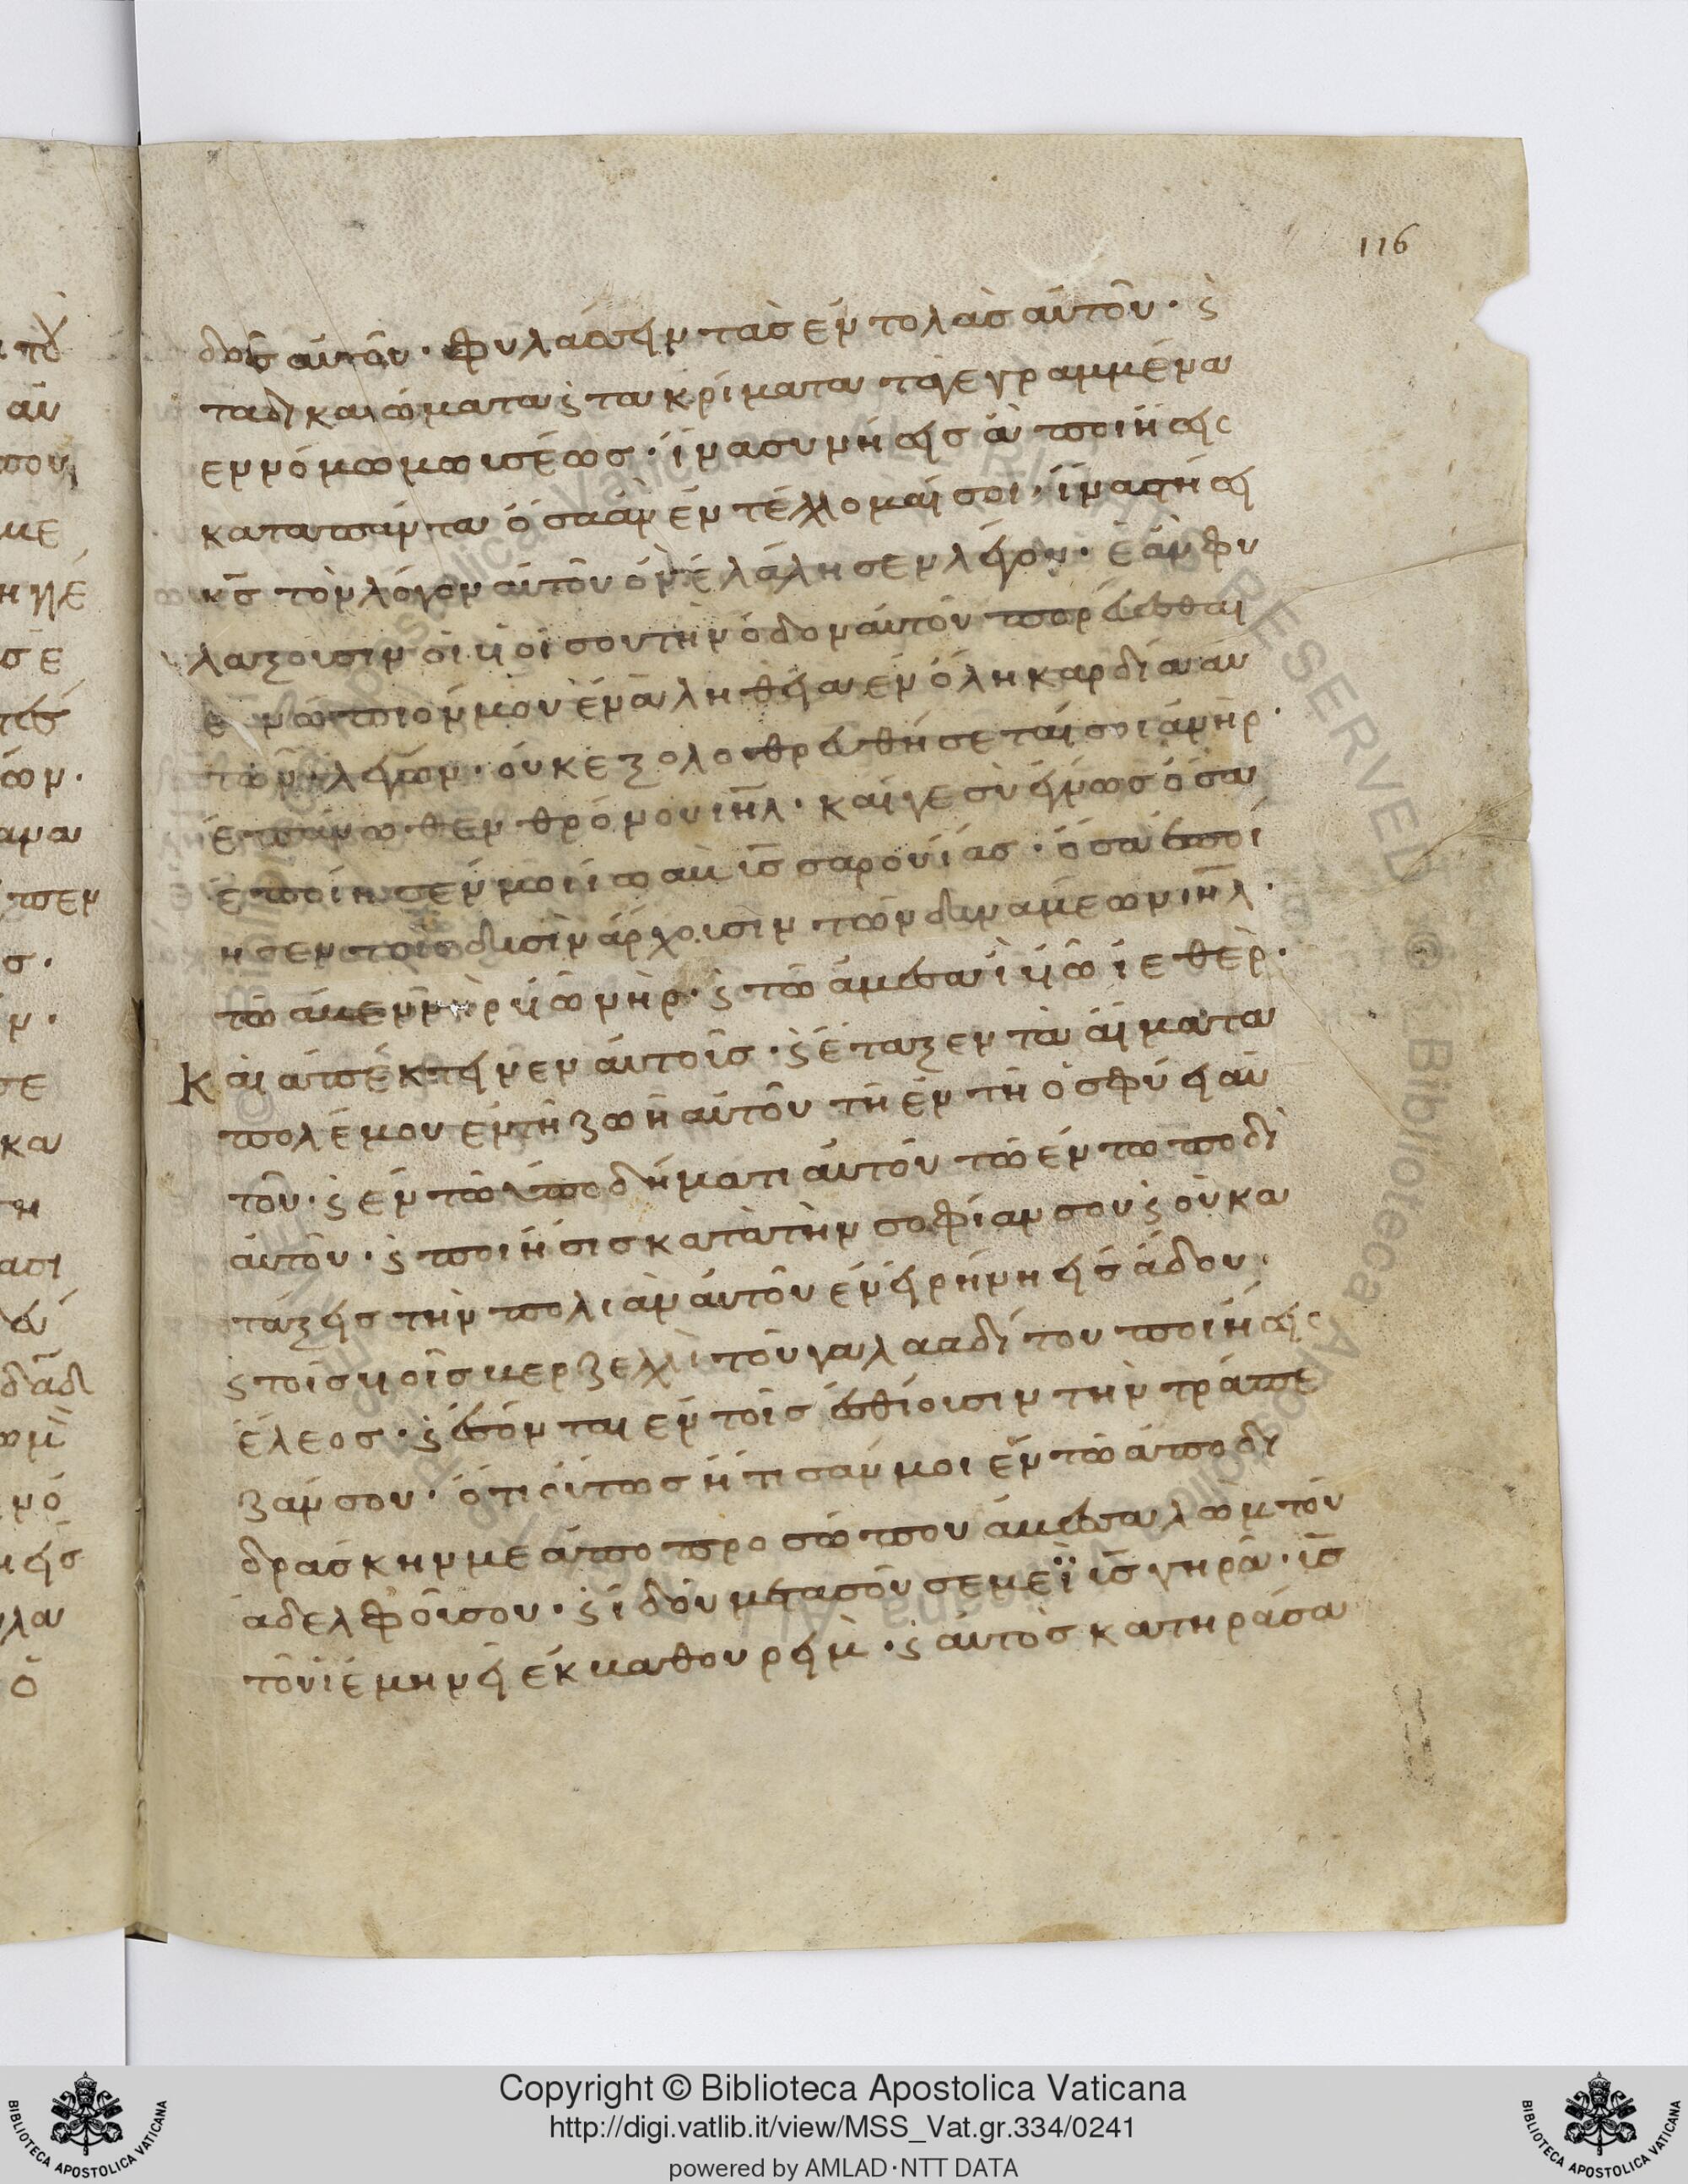 116
δοῦσ αὐτοῦ· φυλάσσειν τὰσ ἐντολὰσ αὐτοῦ· ϛ
τα δικαιώματα ϛ τα κρίματα τὰ γεγραμμένα
ἐν νόμω μωυσέωσ· ἵνα συνήσεισ ἃ ποιήσεις
κατα πάντα ὅσα ἂν ἐντέλλομαί σοι· ἵνα στήσει
κ̅σ τὸν λόγον αὐτοῦ ὃν ἐλάλησεν λέγον· ἐὰν φυ
λαξουσιν οἱ υἱοί σου την ὁδον αὐτῶν πορεύεσθαι
ἐνώπιόν μου ἐν ἀληθεία ἐν ὅλη καρδία αυ
τῶν λέγων· οὐκ ἐξολοθρευθήσεταί σοι ἀνὴρ·
ἐπάνωθεν θρόνου ιη̅λ· καί γε σὺ ἔγνωσ ὅσα
ἐποίησέν μοι ἰωαὺ υι̅σ σαρουίασ· ὅσα ἐποί
ησεν τοῖσ δυσὶν ἄρχουσιν τῶν δυνάμεων ιη̅λ·
τῶ ἀβεννὴρ υἱῶ νηρ· ϛ τῶ ἀμεσαῒ υἱῶ ἰεθερ·
Καὶ ἀπέκτεινεν αὐτοῖσ· ϛ ἔταξεν τὰ αἵματα
πολέμου ἐν τῆ ζωῆ αὐτοῦ τῆ ἐν τῆ ὀσφύει αὐ
τοῦ· ϛ ἐν τῶ ὑποδήματι αὐτοῦ τῶ ἐν τω ποδὶ
αὐτοῦ· ϛ ποιήσισ κατὰ τὴν σοφίαν σου ϛ οὐ κα
τάξεισ τὴν πολιὰν αὐτοῦ ἐν εἰρήνη εἰσ ἅδου·
ϛ τοῖσ υἱοῖσ βερζελχὶ τοῦ γαλααδίτου ποιήσεις
ἔλεοσ· ϛ ἔσονται ἐν τοῖσ ἐσθίουσιν τὴν τράπε
ζάν σου· ὅτι οὕτωσ ἤτισάν μοι ἐν τῶ ἀποδι
δράσκην με ἀπο προσώπου ἀμεσαλωμ τοῦ
ἀδελφοῦ σου· ϛ ἰδοὺ μετα σοῦ σεμεῒ υι̅σ γηρά· υι̅σ
τοῦ ἰεμηνεὶ ἐκ βαθουρείμ· ϛ αὐτὸσ κατηράσα
Copyright © Biblioteca Apostolica Vaticana
http://digi.vatlib.it/view/MSS_Vat.gr.334/0241
powered by AMLAD·NTT DATA
BIBLIOTECA APOSTOLICA VATICANA
BIBLIOTECA APOSTOLICA VATICANA